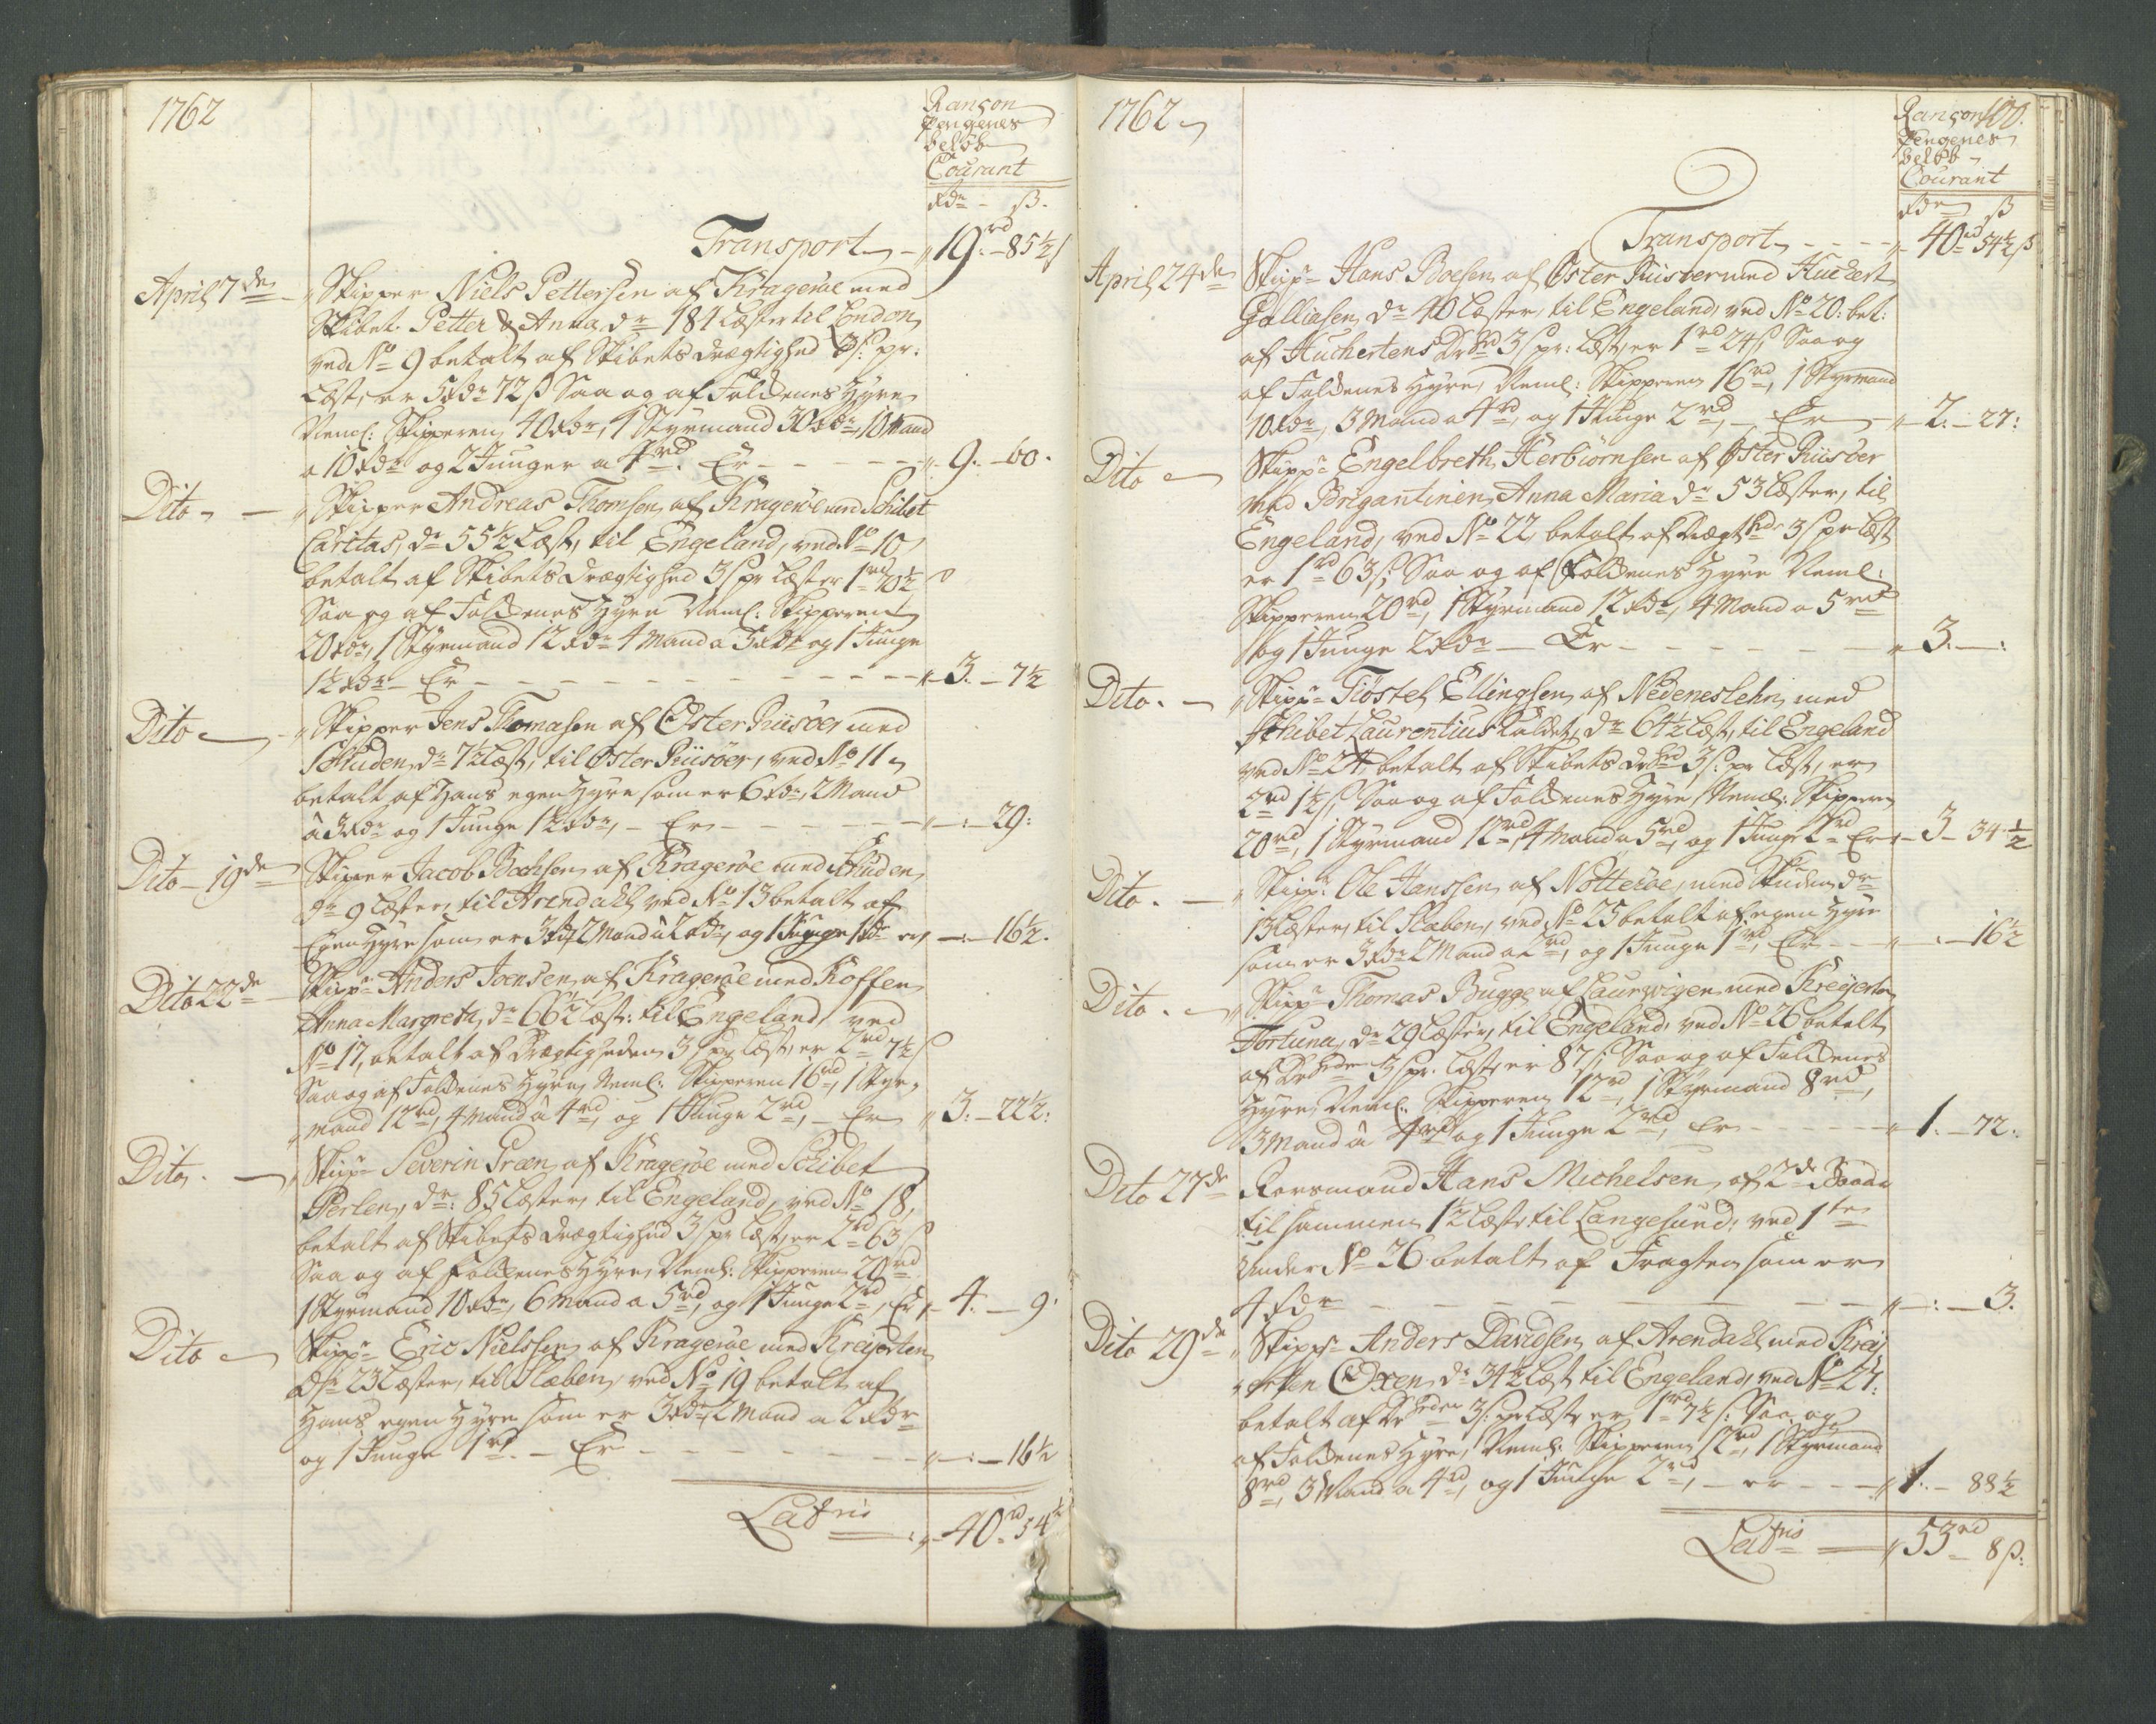 1762
Rançon
Pengenes
beløb
Courant
rdr - ß.
Transport - 19rd - 85½ ß
April 7de - Skipper Niels Pettersen af Kragerøe med
Skibet Petter & Anna, dr 181 Læster til London,
ved No 9 betalt af Skibets drægtighed 3 ß: pr:
Læst, er 5 rdr 72 ß Saa og af Folckenes Hyre
Neml: Skipperen 40 rdr, 1 Styrmand 30 rdr, 10 Mand
a 10 rdr og 2 Junger a 4 rd. Er - 9. - 60.
Dito - Skipper Andreas Thomsen af Kragerøe med Schibet
Caritas, dr 55½ Læst, til Engeland, ved No 10
betalt af Skibets drægtighed 3 ß pr Læst er 1 rd 70½ ß
Saa og af Folckenes Hyre Neml: Skipperen
20 rdr, 1 Styrmand 12 rdr 4 Mand a 5 rdr og 1 Junge
1½ rdr - Er - 3. - 7½
Dito - Skipper Jens Thomasen af Øster Riisøer med
Skuden, dr 7½ Læst, til Øster Riisøer, ved No 11
betalt af Hans egen Hyre som er 6 rdr, 2 Mand
à 3 rdr og 1 Junge 1½ rdr, - Er - : - 29:
Dito - 19de Skipper Jacob Bochsen af Kragerøe med Skuden,
dr 9 Læster, til Arendahl ved No 13 betalt af
Egen Hyre som er 3 rdr 2 Mand à 2 rdr, og 1 Junge 1 rdr er - : - 16½.
Dito 22de Skippr Anders Joensen af Kragerøe med Koffen
Anna Margreta, dr 66½ Læst: til Engeland ved
No 17, betalt af Drægtigheden 3 ß pr Læst, er 2 rd 7½ ß
Saa og af Folckenes Hyre, Neml: Skipperen 16 rd, 1 Styr-
mand 12 rd, 4 Mand à 4 rd, og 1 Junge 2 rd, - Er 3. - 22½:
Dito. - Skippr Severin Præn af Kragerøe med Schibet
Perlen, dr: 85 Læster, til Engeland, ved No 18,
betalt af Skibets drægtighed 3 ß pr Læst, er 2 rd 63 ß
Saa og af Folckenes Hyre, Neml: Skipperen 20 rd
1 Styrmand 10 rdr, 6 Mand a 5 rd, og 1 Junge 2 rd, Er 4. - 9.
Dito - Skippr Eric Nielssen af Kragerøe med Kreyerten
dr 23 Læster, til Slæben, ved No 19 betalt af
Hans egen Hyre som er 3 rdr, 2 Mand a 2 rdr
og 1 Junge 1 rd. - Er - : - 16½
Latris - 40 rd 54½
1762
100.
Rançon
Pengenes
beløb
Courant
rdr ß
Transport - 40 rd 54½ ß
April 24de Skippr Hans Boesen af Øster Riisøer med Huckert
Galliasen, dr 40 Læster, til Engeland, ved No 20: bet:
af Huckertens Drhed 3 ß pr: Læst, er 1 rd 24 ß Saa og
af Folckenes Hyre, Neml: Skipperen 16 rd, 1 Styrmand
10 rdr, 3 Mand a 4 rd, og 1 Junge 2 rd, - Er - 2. - 27:
Dito - Skippr Engelbreth Herbiørnsen af Øster Riisøer
med Brigantinen Anna Maria dr 53 Læster, til
Engeland, ved No 22, betalt af Drægthde 3 ß pr Læst
er 1 rd 63 ß; Saa og af Folckenes Hyre Neml:
Skipperen 20 rd, 1 Styrmand 12 rdr, 4 Mand a 5 rd
og 1 Junge 2 rdr - Er - 3. - :
Dito. - Skippr Tiøstel Ellingsen af Nedeneslehn med
Schibet Laurentius kaldet, dr 64½ Læst, til Engeland
ved No 24, betalt af Skibets Drhed 3 ß: pr Læst, er
2 rd 1½ ß Saa og af Folckenes Hyre, Neml: Skipperen
20 rd, 1 Styrmand 12 rd, 4 Mand a 5 rd, og 1 Junge 2 rd Er 3 - 34½
Dito. - Skippr Ole Hanssen af Nøtterøe, med Skuden dr
13 Læster, til Slæben, ved No 25 betalt af egen Hyre
som er 3 rdr 2 Mand a 2 rd, og 1 Junge 1 rd, Er - . - 16½
Dito. - Skippr Thomas Bugge af Laurwigen med Kreyerten
Fortuna, dr 29 Læster, til Engeland, ved No 26 betalt
af Drheden 3 ß pr. Læst, er 87 ß; Saa og af Folckenes
Hyre, Neml: Skipperen 12 rd, 1 Styrmand 8 rd,
3 Mand à 4 rd og 1 Junge 2 rd, Er - 1. - 72:
Dito 27de Rorsmand Hans Michelsen, af 2de Baade
til sammen 1½ Læst, til Langesund, ved 1te
Under No 26 betalt af Fragten som er
4 rdr - : - 3.
Dito 29de Skippr Anders Davidsen af Arendahl med Krey-
erten Oxen, dr 34½ Læst til Engeland, ved No 27:
betalt af Drheden 3 ß: pr Læst, er 1 rd 7½ ß: Saa og
af Folckenes Hyre, Neml: Skipperen 12 rd, 1 Styrmand
8 rd, 3 Mand a 4 rd, og 1 Junge 2 rd, - er - 1. - 88½
Latris - 53 rd 8 ß: